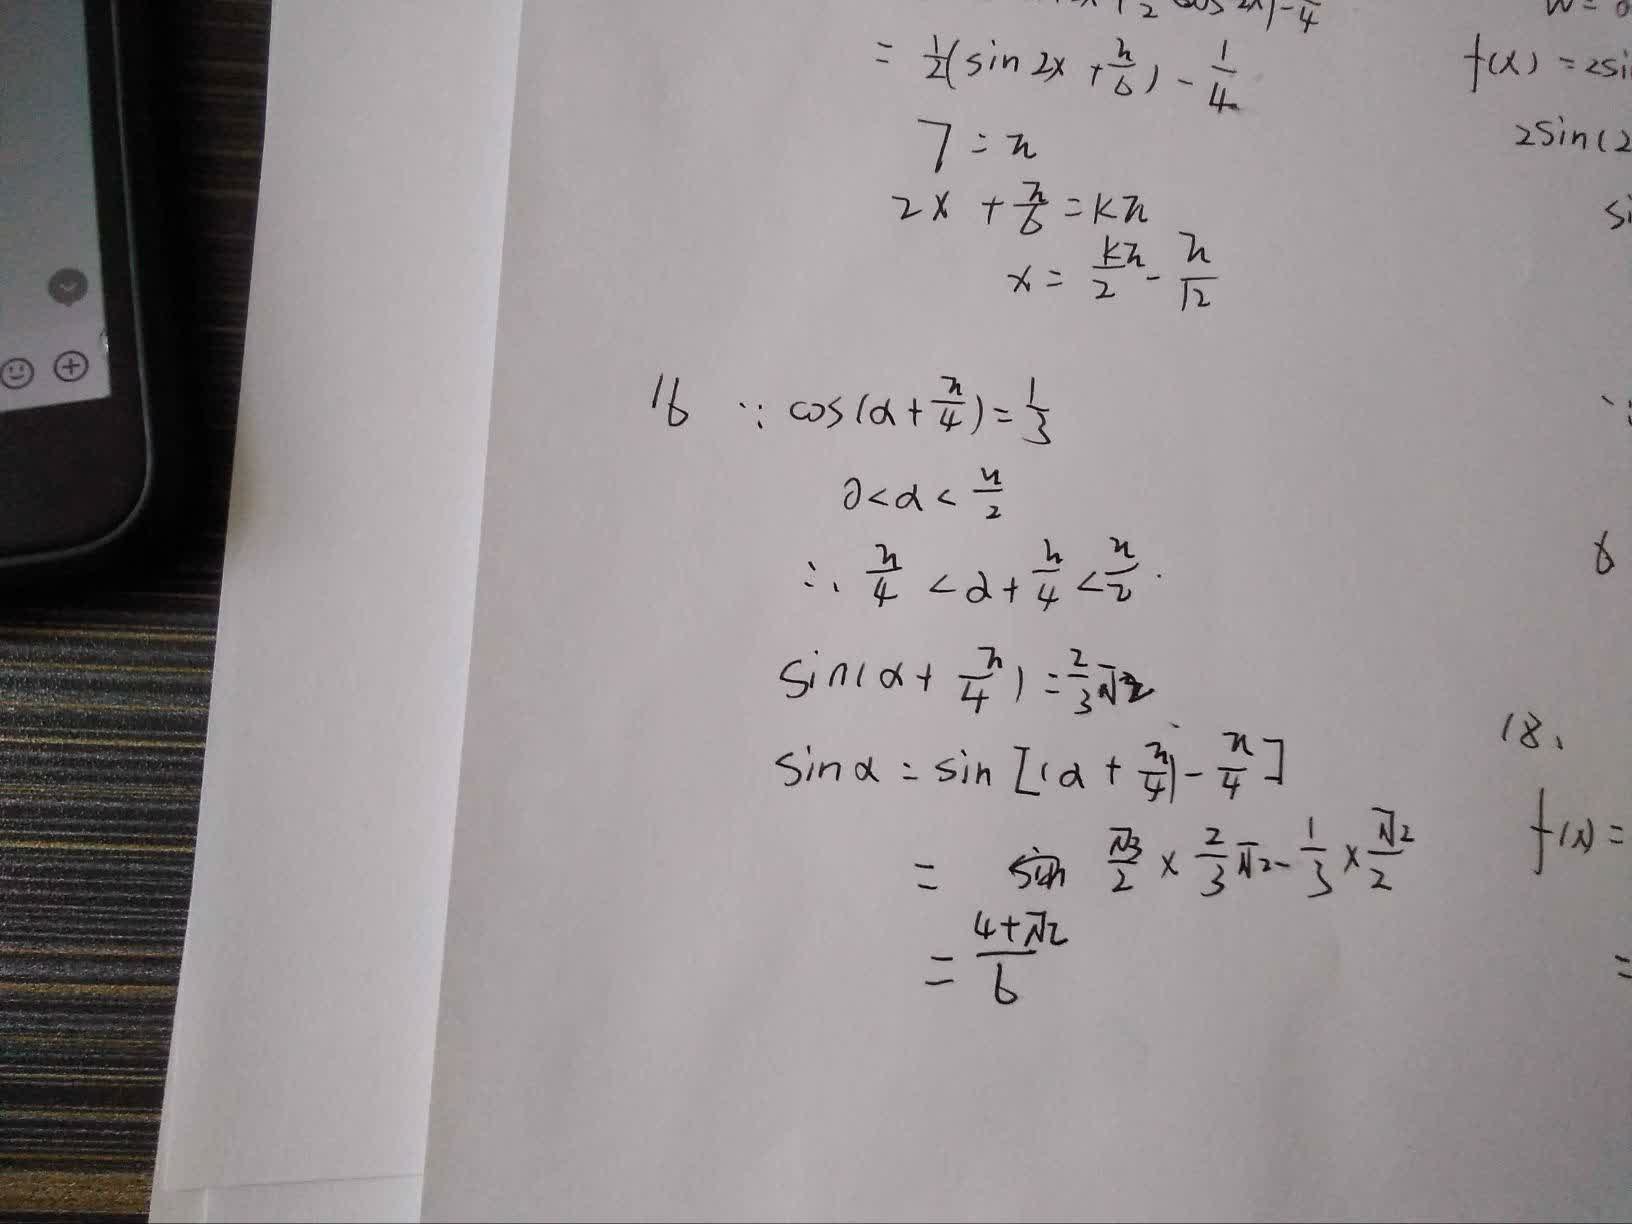 = 1/2(sin 2x + π/6) - 1/4
T = π
2x + π/6 = kπ
x = kπ/2 - π/12
16 ∵ cos(α + π/4) = 1/3
0 < α < π/2
∴ π/4 < α + π/4 < π/2
sin(α + π/4) = 2/3√2
sinα = sin [(α + π/4) - π/4]
= √3/2 × 2/3√2 - 1/3 × √2/2
= 4+√2/6
f(x) = 2si
2sin(2
si
18、
f(x) =
=